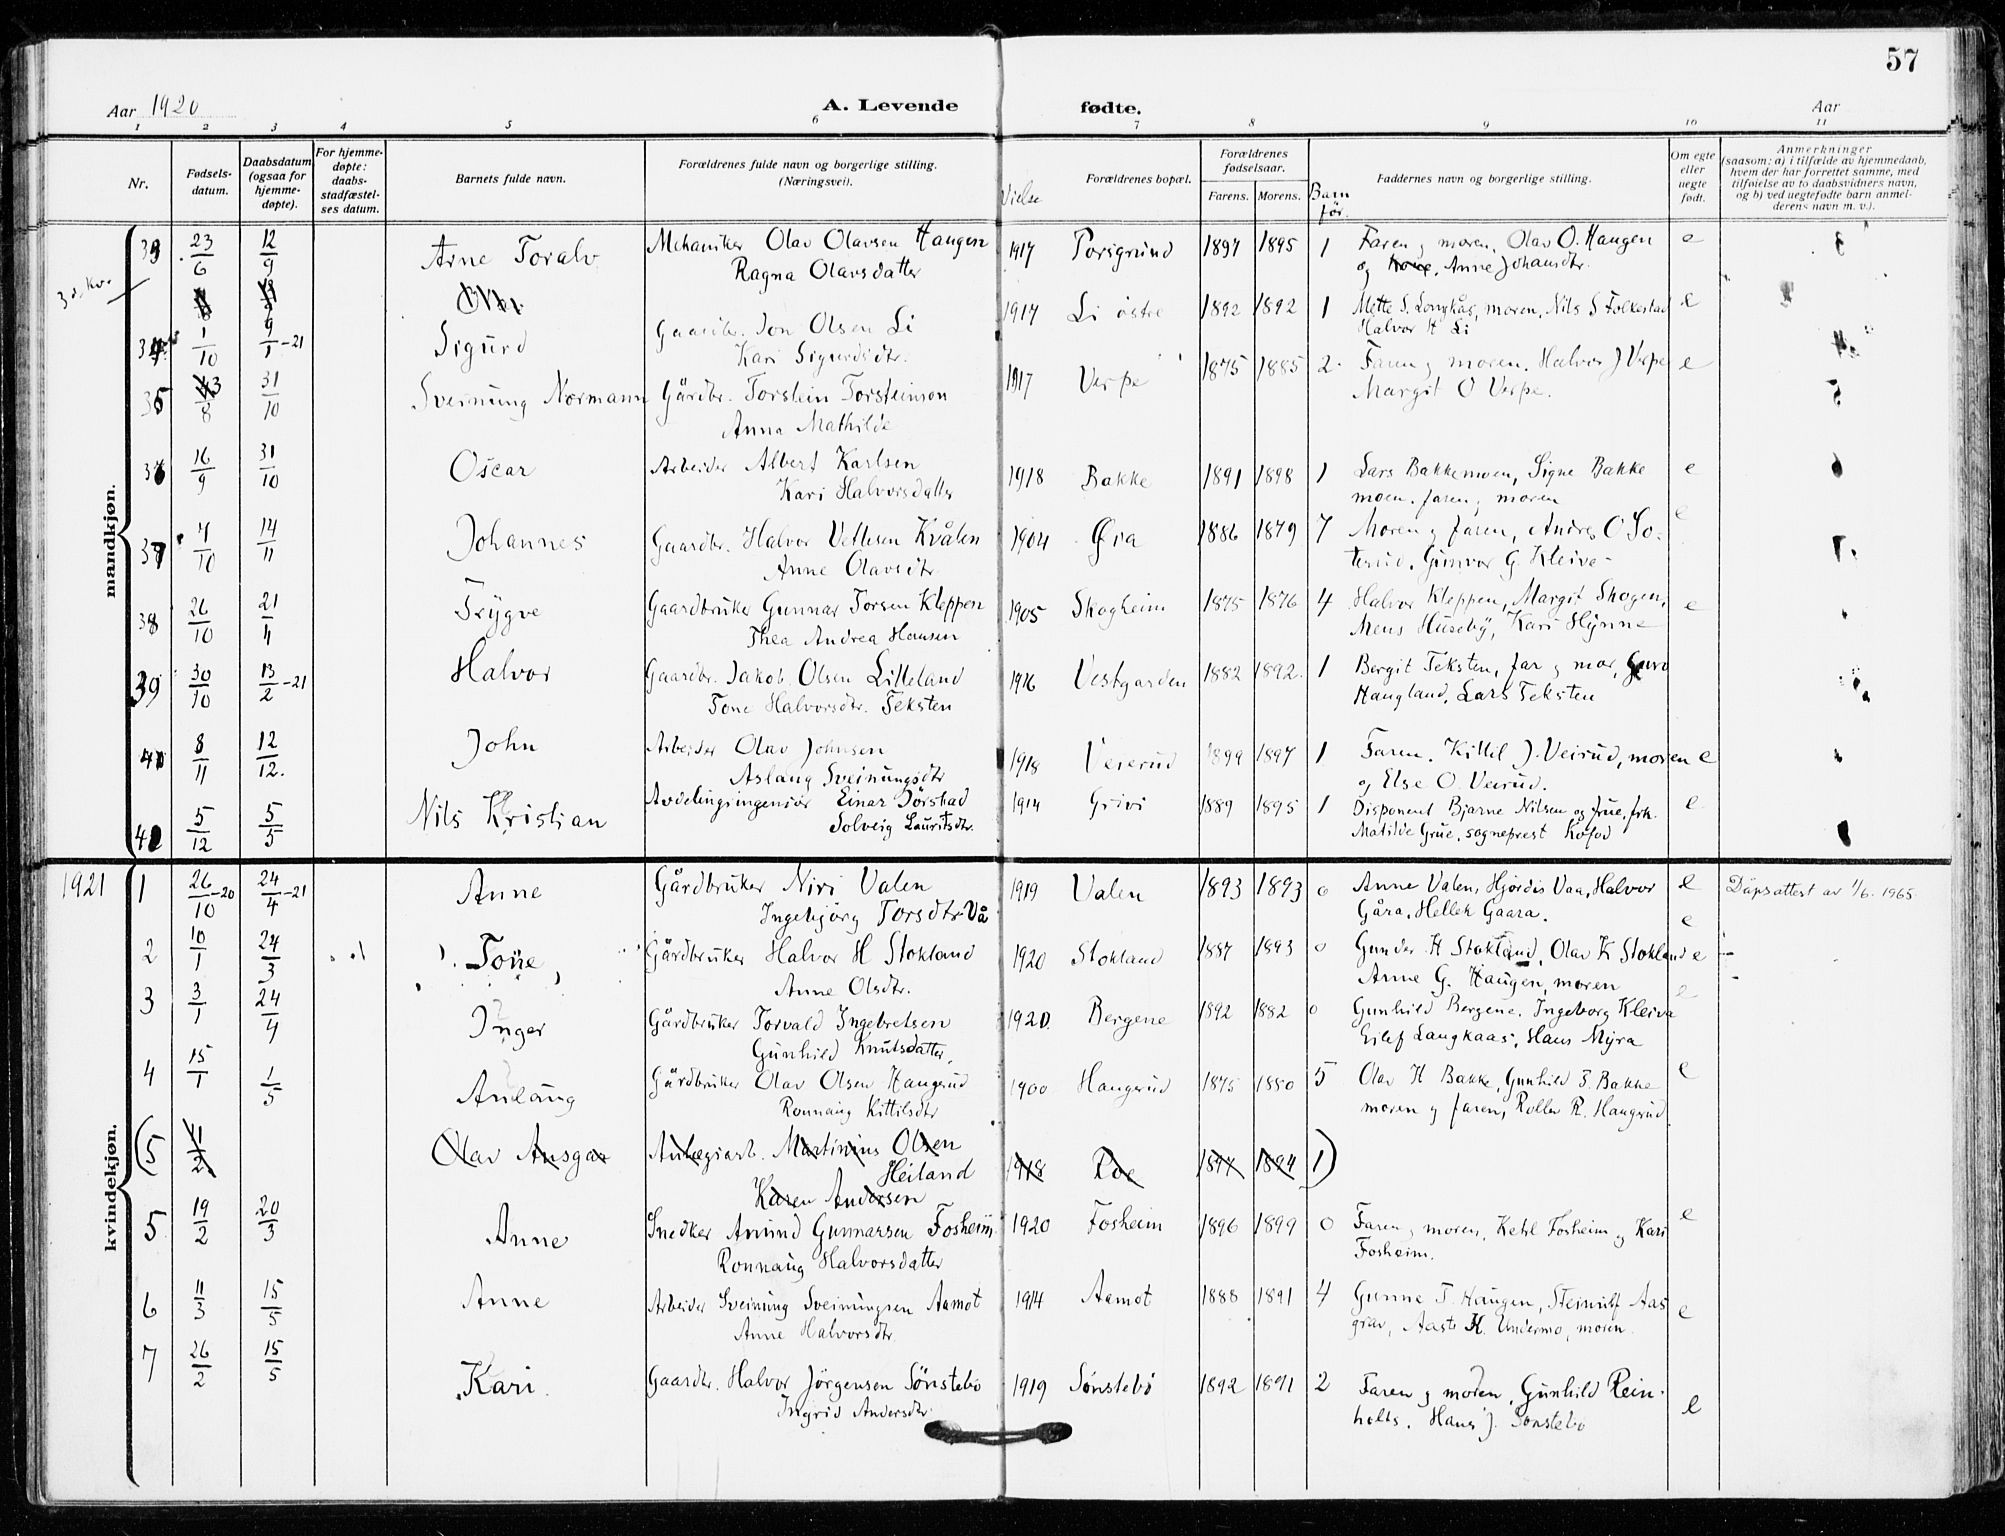 57
Aar 1920
A. Levende fødte.
Aar
1 2 3 4 5 6 7 8 9 10 11
Nr.
Fødsels-
datum.
Daabsdatum
(ogsaa for
hjemme-
døpte).
For hjemme-
døpte:
daabs-
stadfæstel-
ses datum.
Barnets fulde navn.
Forældrenes fulde navn og borgerlige stilling.
(Næringsvei).
Vielse
Forældrenes bopæl.
Forældrenes
fødselsaar.
Farens. Morens.
Barn
før.
Faddernes navn og borgerlige stilling.
Om egte
eller
uegte
født.
Anmerkninger
(saasom: a) i tilfælde av hjemmedaab,
hvem der har forrettet samme, med
tilføielse av to daabsvidners navn,
og b) ved uegtefødte barn anmel-
derens navn m. v.).
mandkjøn.
33 23/6 12/9 Arne Toralv Mekaniker Olav Olavsen Haugen 1917 Porsgrund 1897 1895 1 Faren og moren, Olav O. Haugen e
Ragna Olavsdatter og Anne Johansdtr.
34 1/10 9/1-21 Sigurd Gaardbr. Jon Olsen Li 1917 Li østre 1892 1892 1 Mette S. Langkås, moren, Nils S Folkestad e
Kari Sigurdsdtr. Halvor H Li
35 31/10 Sveinung Normann Gårdbr. Torstein Torsteinson 1917 Verpe 1875 1885 2 Faren og moren. Halvor J Verpe e
Anna Mathilde Margit O Verpe.
36 16/9 31/10 Oscar Arbeider Albert Karlsen 1918 Bakke 1891 1898 1 Lars Bakkemoen, Signe Bakke e
Kari Halvorsdatter moen. faren og moren
37 4/10 14/11 Johannes Gaardbr. Halvor Vetlesen Kvålen 1904 Øra 1886 1879 7 Moren og faren, Andres O So- e
Anne Olavsdtr. terud. Gunvor G. Kleiva
38 26/10 21/11 Trygve Gaardbruker Gunnar Torsen Kleppen 1905 Skogheim 1875 1876 4 Halvor Kleppen, Margit Skogen, e
Thea Andrea Hansen Mens Huseby, Kari Hynne
39 30/10 13/2-21 Halvor Gaardbr. Jakob Olsen Lilleland 1916 Vestgarden 1882 1892 1 Bergit Teksten, far og mor, Guro
Tone Halvorsdtr. Teksten Haugland, Lars Teksten
8/11 12/12. John Arbeider Olav Johnsen 1918 Veierud 1899 1897 1 Faren. Kittil J. Veirud, moren e
Aslaug Sveinungsdtr og Else O. Veirud.
5/12 5/5 Nils Kristian Avdelingsingeniør Einar Jørstad 1914 Grivi 1889 1895 1 Disponent Bjarne Nilsen og frue, frk. e
Solveig Lauritsdtr. Matilde Grue, sogneprest Kofod
1921
kvindekjøn.
1 26/10-20 24/4-21 Anne Gårdbruker Niri Valen 1919 Valen 1893 1893 0 Anne Valen, Hjördis Vaa, Halvor e Dåpsattest av 1/6. 1965
Ingebjørg Torsdtr. Vå Gåra. Hellek Gaara. e
2 10/1 24/3 Tone Gårdbruker Halvor H Stokland 1920 Stokland 1887 1893 0 Gunder H Stokland, Olav K Stokland e
Anne Olsdtr. Anne G. Haugen, moren
3 3/1 24/4 Inger Gårdbruker Torvald Ingebretsen 1920. Bergene 1892 1882 0 Gunhild Bergene. Ingeborg Kleiva e
Gunhild Knutsdatter Eilef Langkaas, Hans Myra
4 15/1 1/5 Anlaug Gårdbruker Olav Olsen Haugerud 1900 Haugerud 1875 1880 5 Olav H Bakke, Gunhild T. Bakke e
Ronnaug Kittilsdtr moren og faren, Rollev R. Haugerud
(5 Olav Ansgar Anlægsarb. Martinius Olsen 1918 Roe 1897 1894 1)
Heiland
Karen Andersen
5 19/2 20/3 Anne Snedker Amund Gunnarsen Fosheim 1920 Fosheim 1896 1899 0 Faren og moren, Ketil Fosheim og Kari e
Ronnaug Halvorsdatter Fosheim.
6 11/3 15/5 Anne Arbeider Sveinung Sveinungsen Aamot 1914 Aamot 1888 1891 4 Gunne T. Haugen, Steinulf Aas e
Anne Halvorsdtr grav, Aaste H. Undermo, moren.
7 26/2 15/5 Kari Gaardbr. Halvor Jörgensen Sönstebö 1919 Sönstebö 1892 1891 2 Faren og moren, Gunhild Rein- e
Ingrid Andersdtr. holts. Hans J. Sönstebö